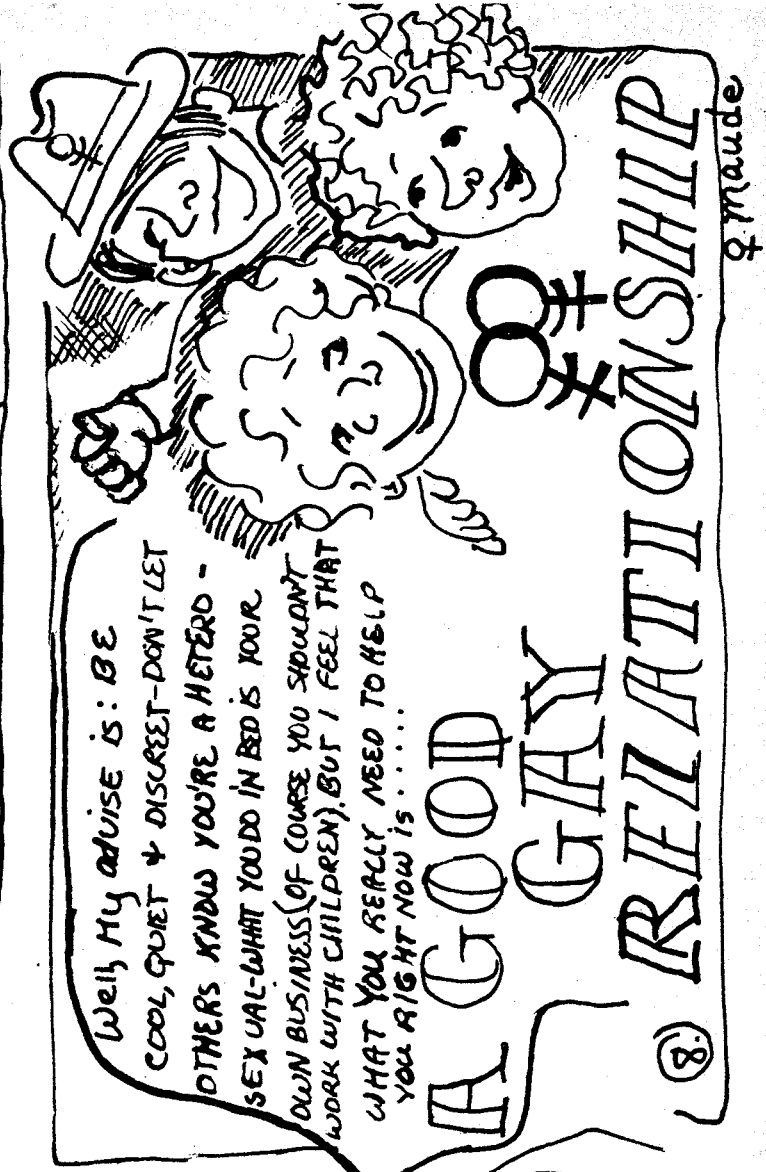 Well, My advise is: BE
COOL, QUIET & DISCREET-DON'T LET
OTHERS KNOW YOU'RE A HETERO-
SEXUAL-WHAT YOU DO IN BED IS YOUR
OWN BUSINESS (OF COURSE YOU SHOULDN'T
WORK WITH CHILDREN). BUT I FEEL THAT
WHAT YOU REALLY NEED TO HELP
YOU RIGHT NOW is ......
A GOOD
GAY
RELATIONSHIP
8.
♀ Maude